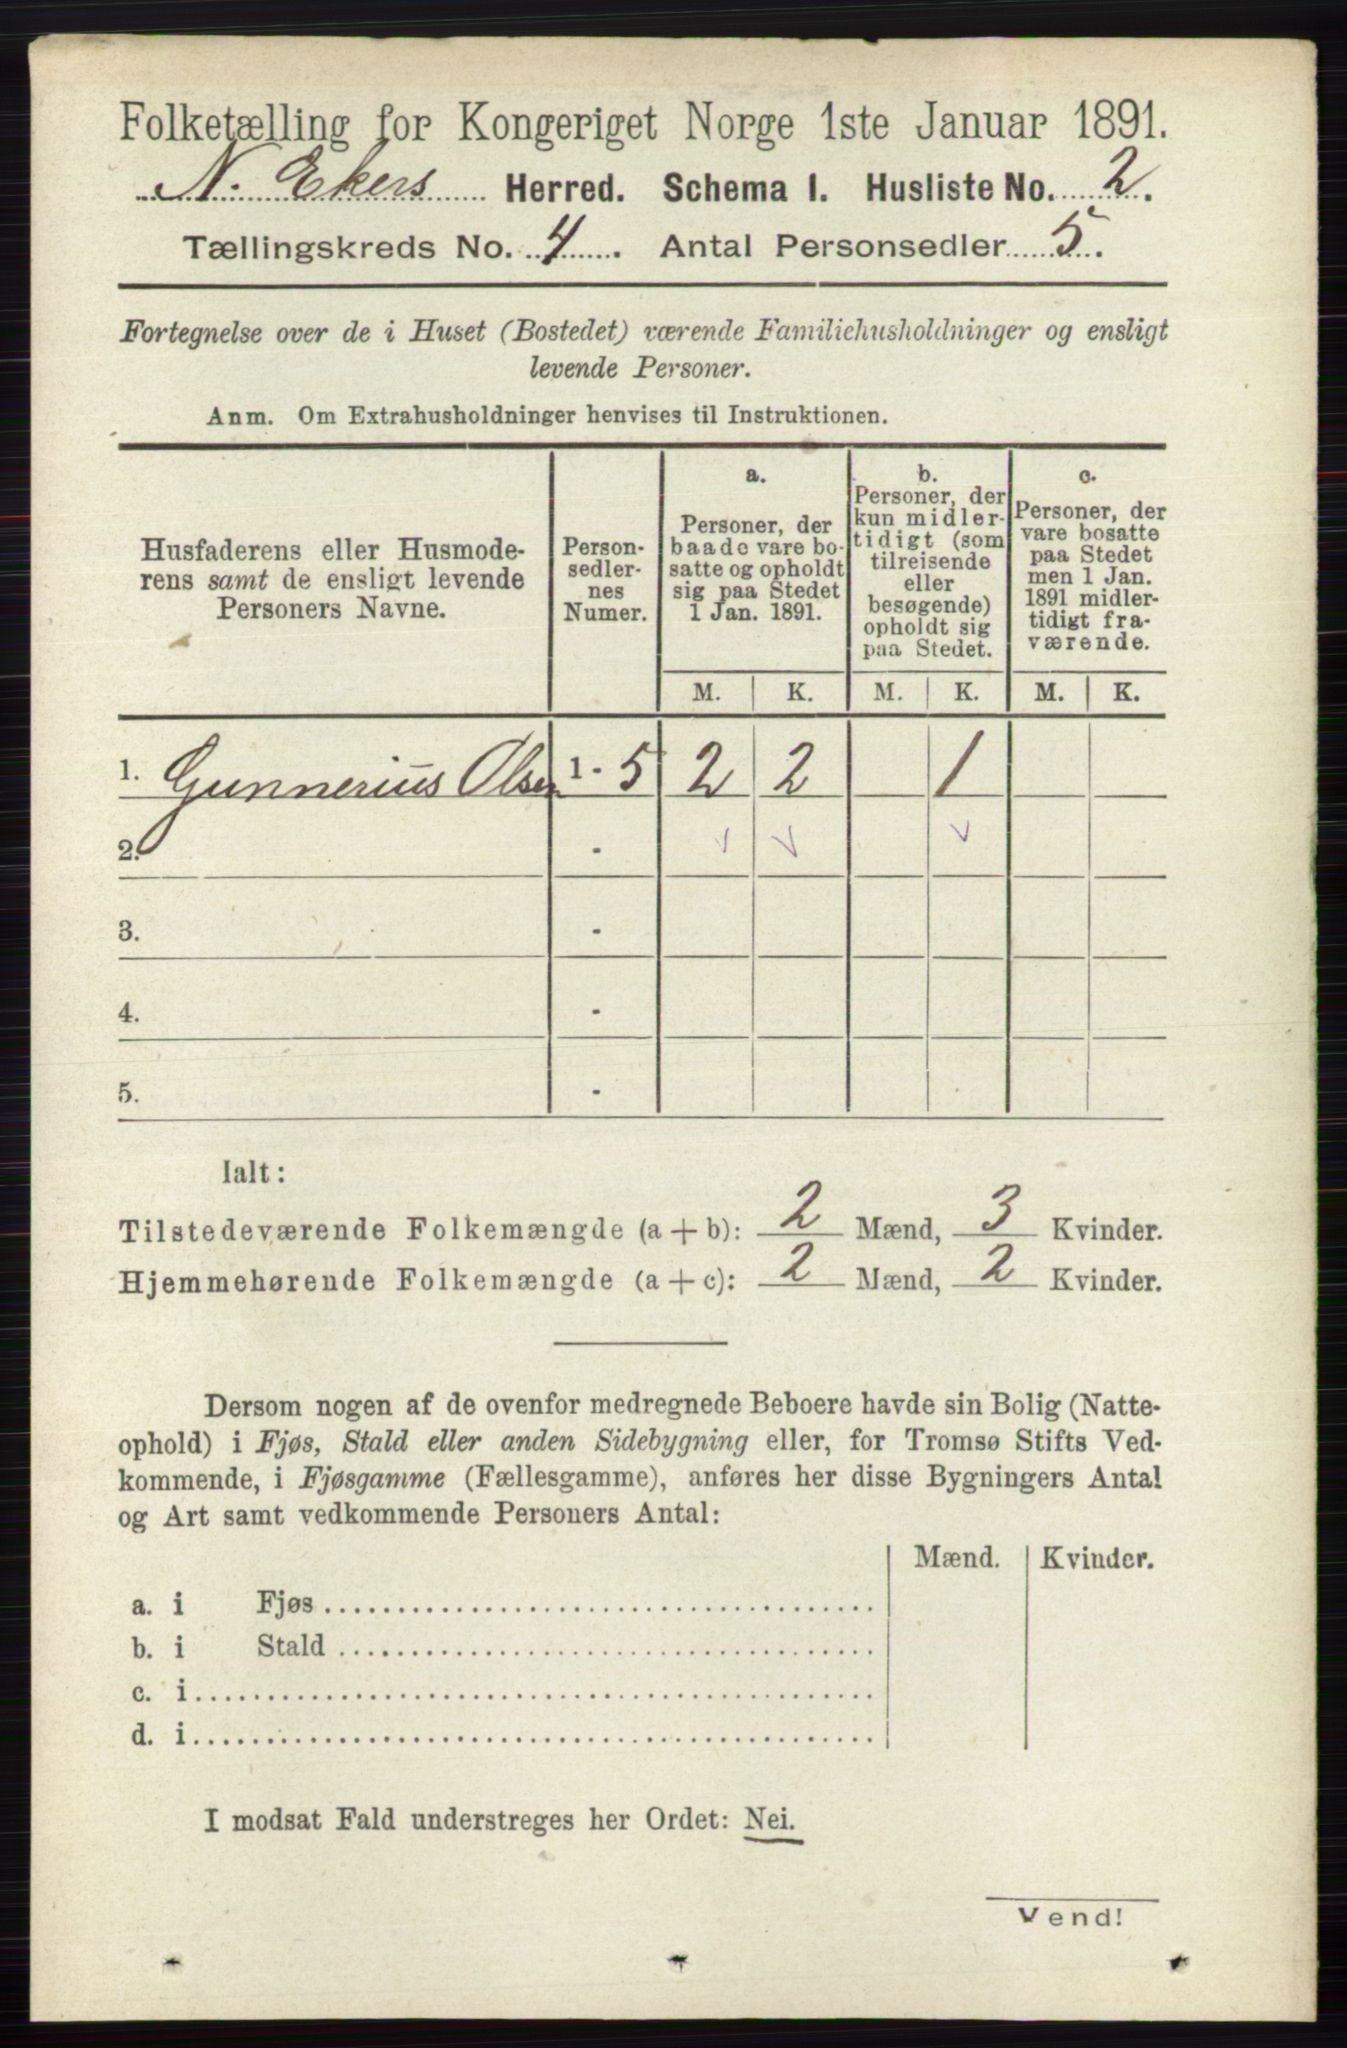 Folketælling for Kongeriget Norge 1ste Januar 1891.
N. Ekers Herred. Schema I. Husliste No. 2.
Tællingskreds No. 4. Antal Personsedler 5.
Fortegnelse over de i Huset (Bostedet) værende Familiehusholdninger og ensligt
levende Personer.
Anm. Om Extrahusholdninger henvises til Instruktionen.
Husfaderens eller Husmode-
rens samt de ensligt levende
Personers Navne.
Person-
sedler-
nes
Numer.
a.
Personer, der
baade vare bo-
satte og opholdt
sig paa Stedet
1 Jan. 1891.
b.
Personer, der
kun midler-
tidigt (som
tilreisende
eller
besøgende)
opholdt sig
paa Stedet.
c.
Personer, der
vare bosatte
paa Stedet
men 1 Jan.
1891 midler-
tidigt fra-
værende.
M. K. M. K. M. K.
1. Gunnerius Olsen 1 - 5 2 2 1
2. -
3. -
4. -
5. -
Ialt:
Tilstedeværende Folkemængde (a + b): 2 Mænd, 3 Kvinder.
Hjemmehørende Folkemængde (a + c): 2 Mænd, 2 Kvinder.
Dersom nogen af de ovenfor medregnede Beboere havde sin Bolig (Natte-
ophold) i Fjøs, Stald eller anden Sidebygning eller, for Tromsø Stifts Ved-
kommende, i Fjøsgamme (Fællesgamme), anføres her disse Bygningers Antal
og Art samt vedkommende Personers Antal:
Mænd. Kvinder.
a. i Fjøs
b. i Stald
c. i
d. i
I modsat Fald understreges her Ordet: Nei.
Vend!